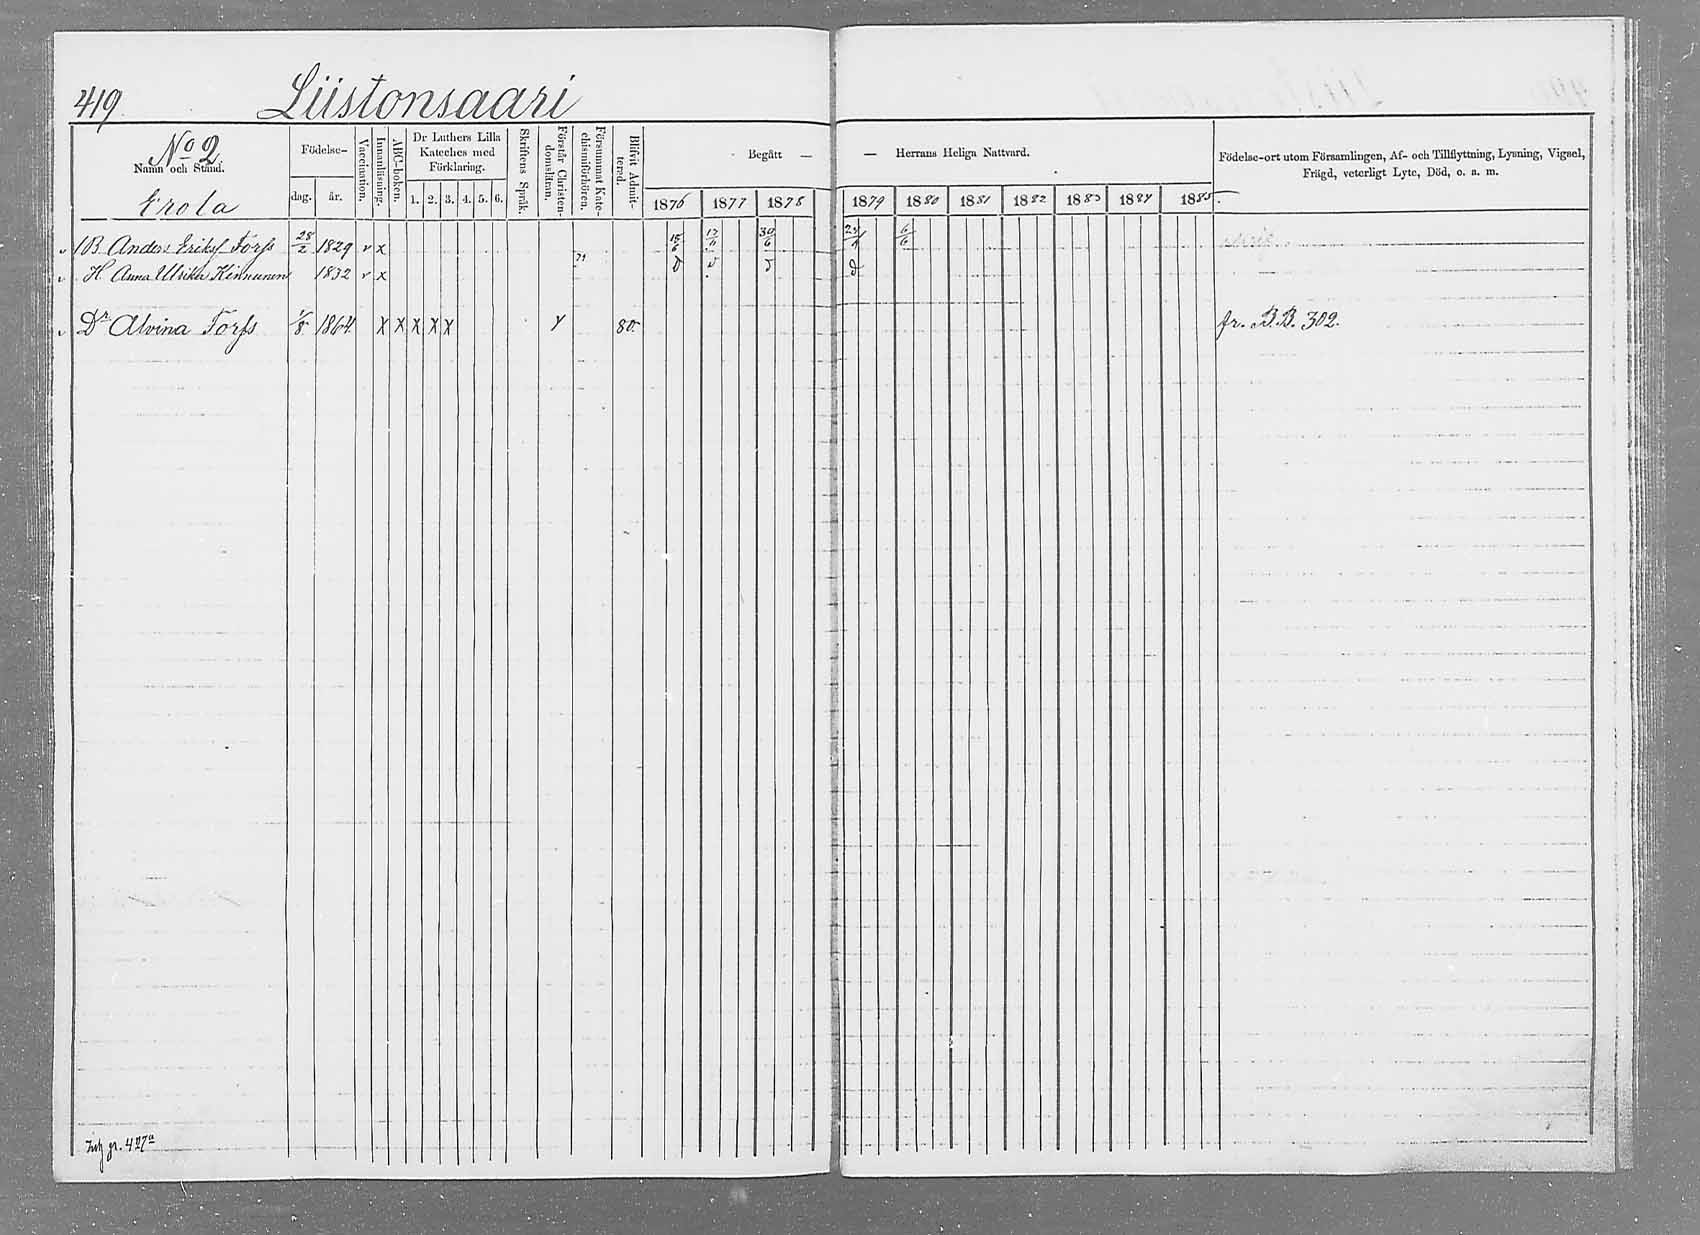 419. Liistonsaari
No 2.
Namn och Stånd.
Erola
Födelse-
dag. år.
Vaccination.
Innanläsning.
ABC-boken.
Dr Luthers Lilla
Kateches med
Förklaring.
1. 2. 3. 4. 5. 6.
Skriftens Språk.
Förstår Christen-
domsläran.
Försummat Kate-
chismiförhören.
Blifvit Admit-
terad.
Begått —
1876 1877 1878
— Herrans Heliga Nattvard.
1879 1880 1881 1882 1883 1884 1885.
Födelse-ort utom Församlingen, Af- och Tillflyttning, Lysning, Vigsel,
Frägd, veterligt Lyte, Död, o. a. m.
v B. Anders Eriksf Torfs 28/2 1829 v x 30/6 6/6
v H. Anna Ulrika Kinnunen 1832 v x
v Dr Alvina Torfs 1/8 1864. X X X X X Y 80. fr. B.B. 302.
427a